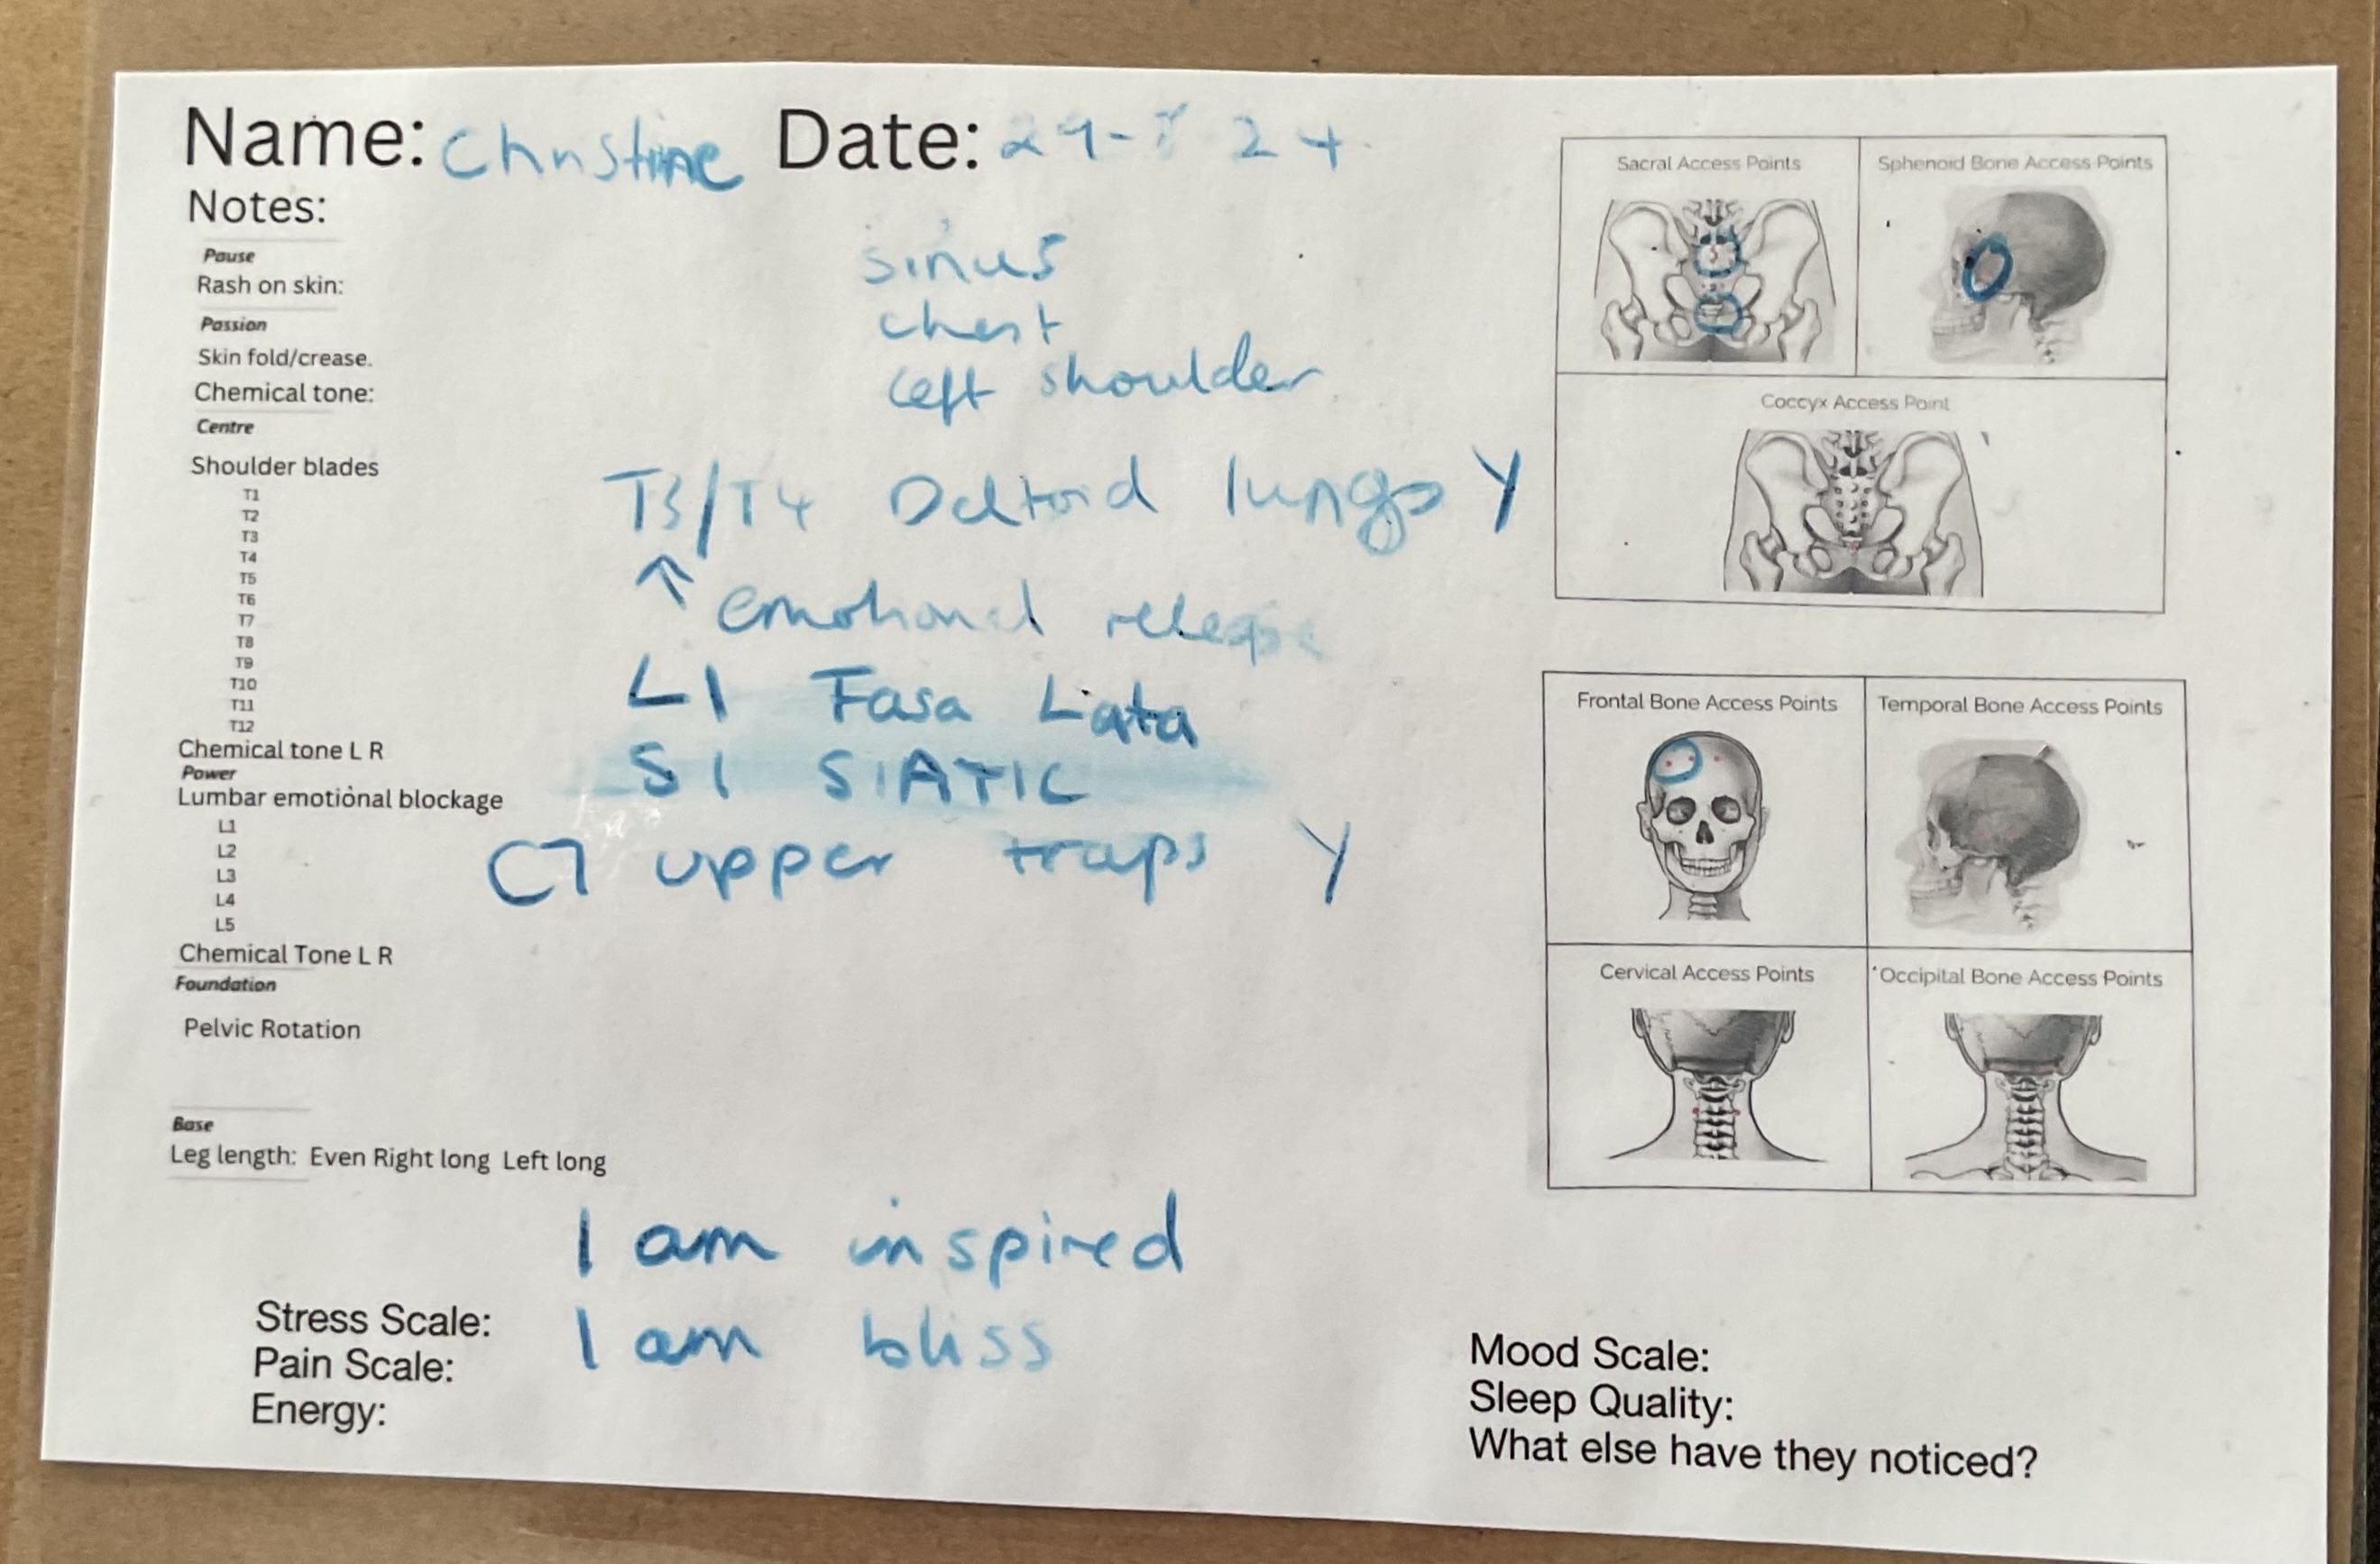 Name: Christine Date: 29- 24
Notes:
Pause
Rash on skin:
Passion
Skin fold/crease.
Chemical tone:
Centre
Shoulder blades
T1
T2
T3
T4
T5
T6
T7
T8
T9
T10
T11
T12
Chemical tone L R
Power
Lumbar emotional blockage
L1
L2
L3
L4
L5
Chemical Tone L R
Foundation
Pelvic Rotation
Base
Leg length: Even Right long Left long
sinus
chest
left shoulder
T3/T4 Deltoid lungs Y
↑ emotional release
L1 Fasa Lata
S1 SIATIC
C7 upper traps Y
I am inspired
I am bliss
Stress Scale:
Pain Scale:
Energy:
Sacral Access Points
Sphenoid Bone Access Points
Coccyx Access Point
Frontal Bone Access Points
Temporal Bone Access Points
Cervical Access Points
Occipital Bone Access Points
Mood Scale:
Sleep Quality:
What else have they noticed?